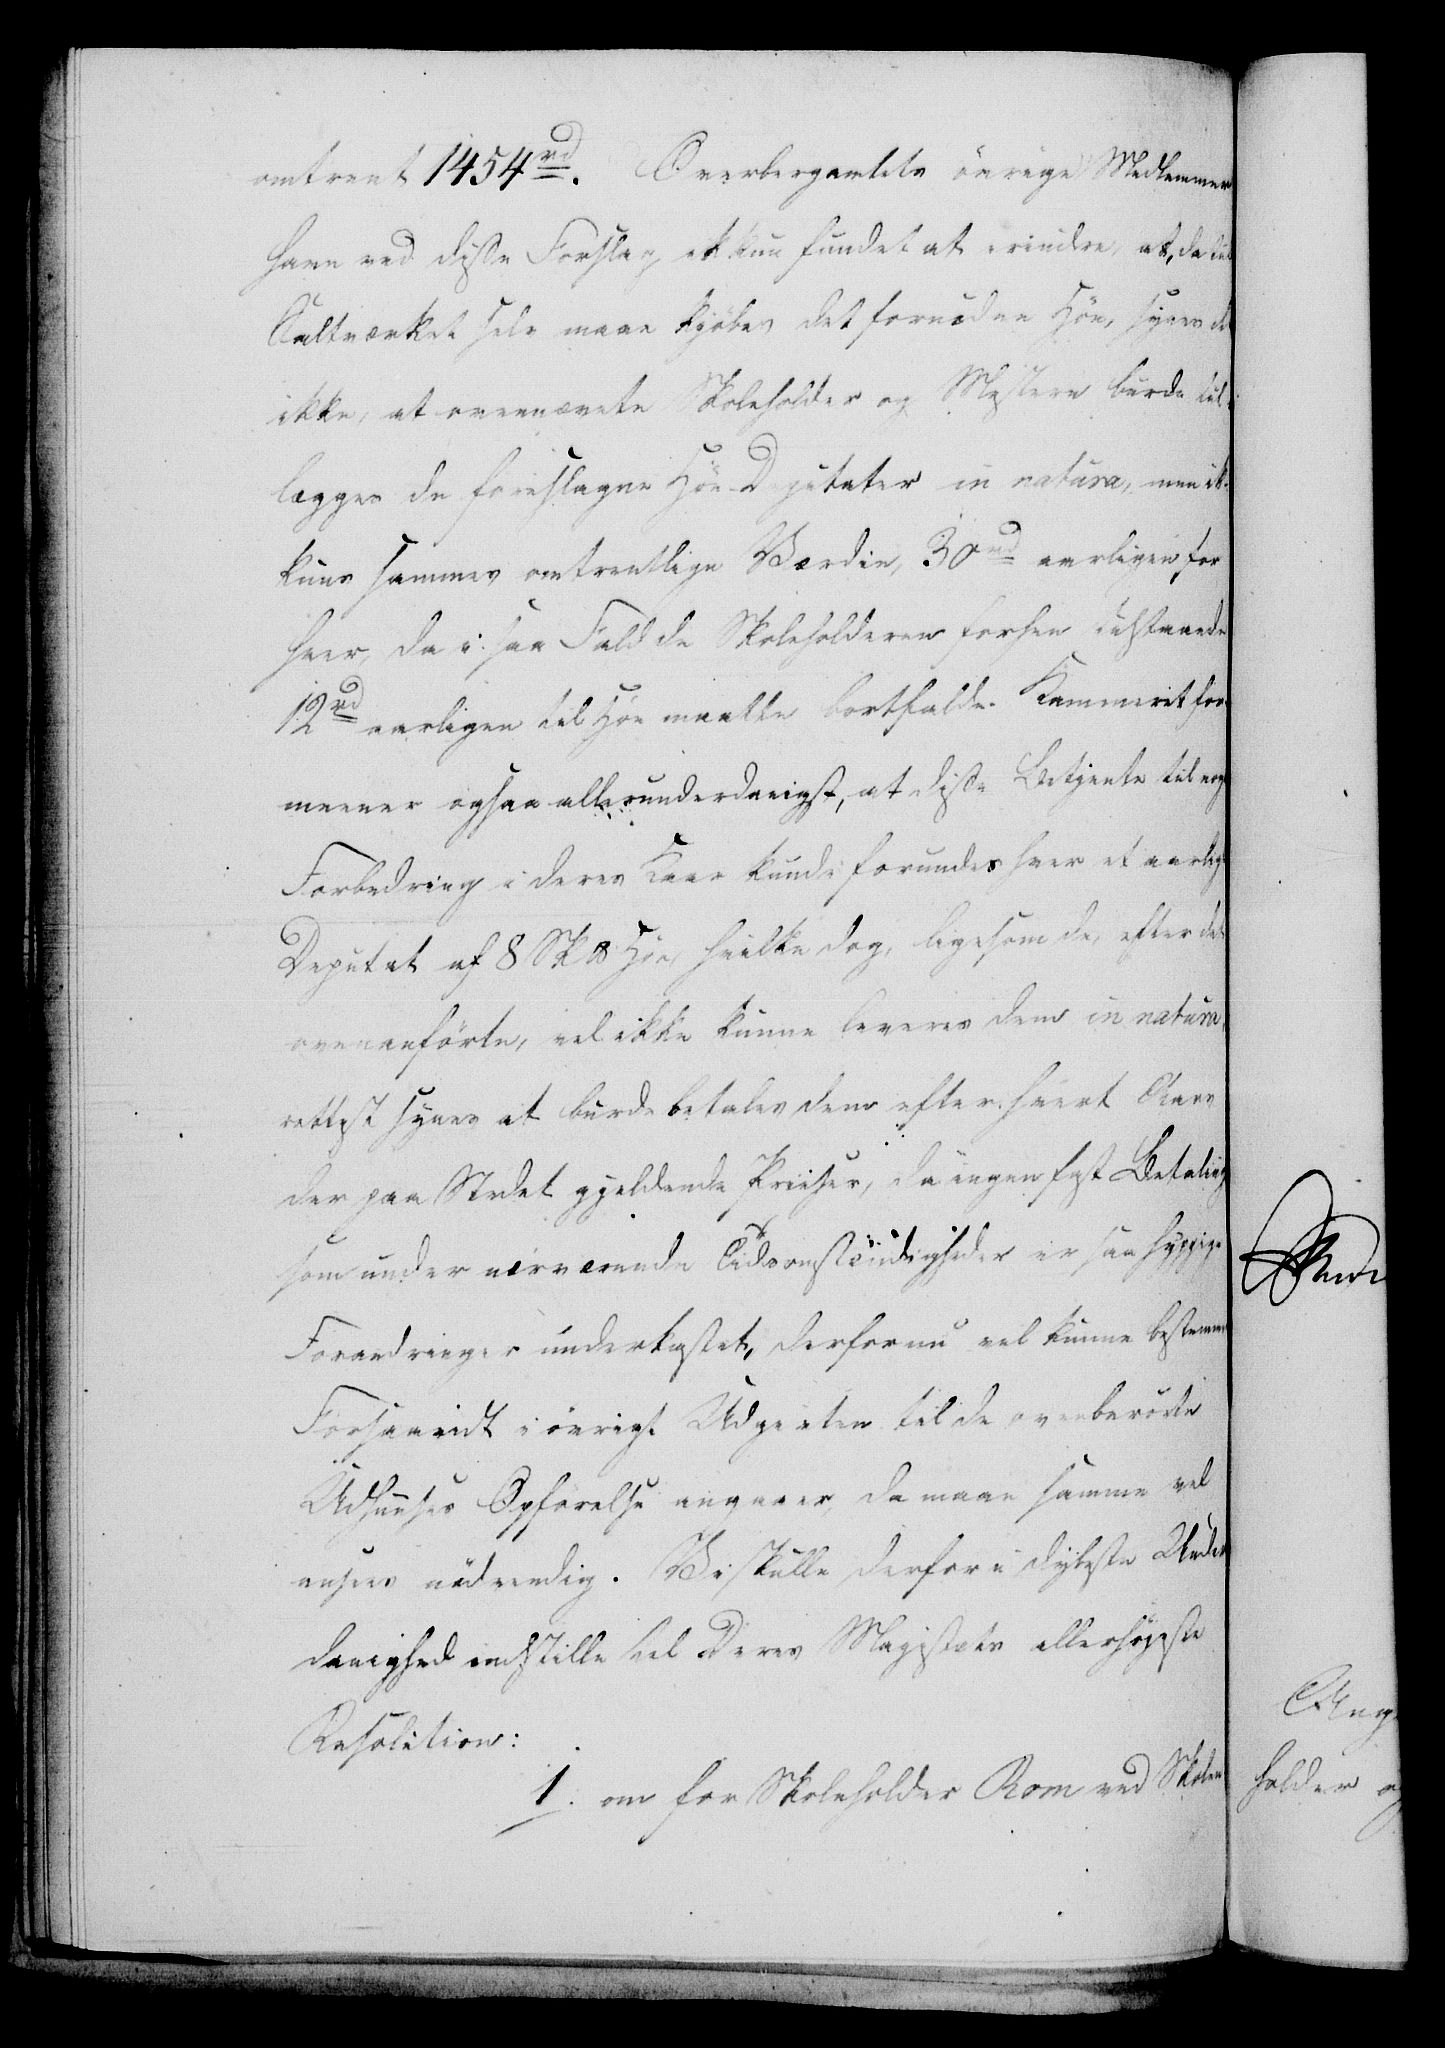 omtrent 1454 rd. Overbergamtets övrige Medlemmer
have ved disse Forslag ikkun fundet at erindre, at, da til
Saltværket selv maae kjöbes det fornödne Höe, synes de
ikke, at ovennævnte Skoleholder og Mestere burde til-
lægges de foreslagne Höe-Deputater in natura, men ik-
kuns sammes omtrentlige Værdie, 30 rd aarligen for
hver, da i saa Fald de Skoleholderen forhen tilstaaede
12 rd aarligen til Höe maatte bortfalde. Kammeret for-
meener ogsaa allerunderdanigst, at disse Betjente til nog
Forbedring i deres Kaar kunde forundes hver et aarligt
Deputat af 8 Sk℔ Höe, hvilke dog, ligesom de, efter det
ovenanförte, vel ikke kunne leveres dem in natura,
rettest synes at burde betales dem efter hvert Aars
der paa Stedet gjeldende Priiser, da ingen fast Betaling
som under nærværende Tidsomstændigheder er saa hyppige
Forandringer underkastet, derfor nu vel kunne bestemmes
Forsaavidt i övrigt Udgivten til de ovenberörte
Udhuuses Opförelse angaaer, da maae samme vel
ansees nödvendig. Vi skulle derfor i dybeste Under
danighed indstille til Deres Majestæts allerhöieste
Resolution:
1. om for Skoleholder Rom ved Skolen
holder og